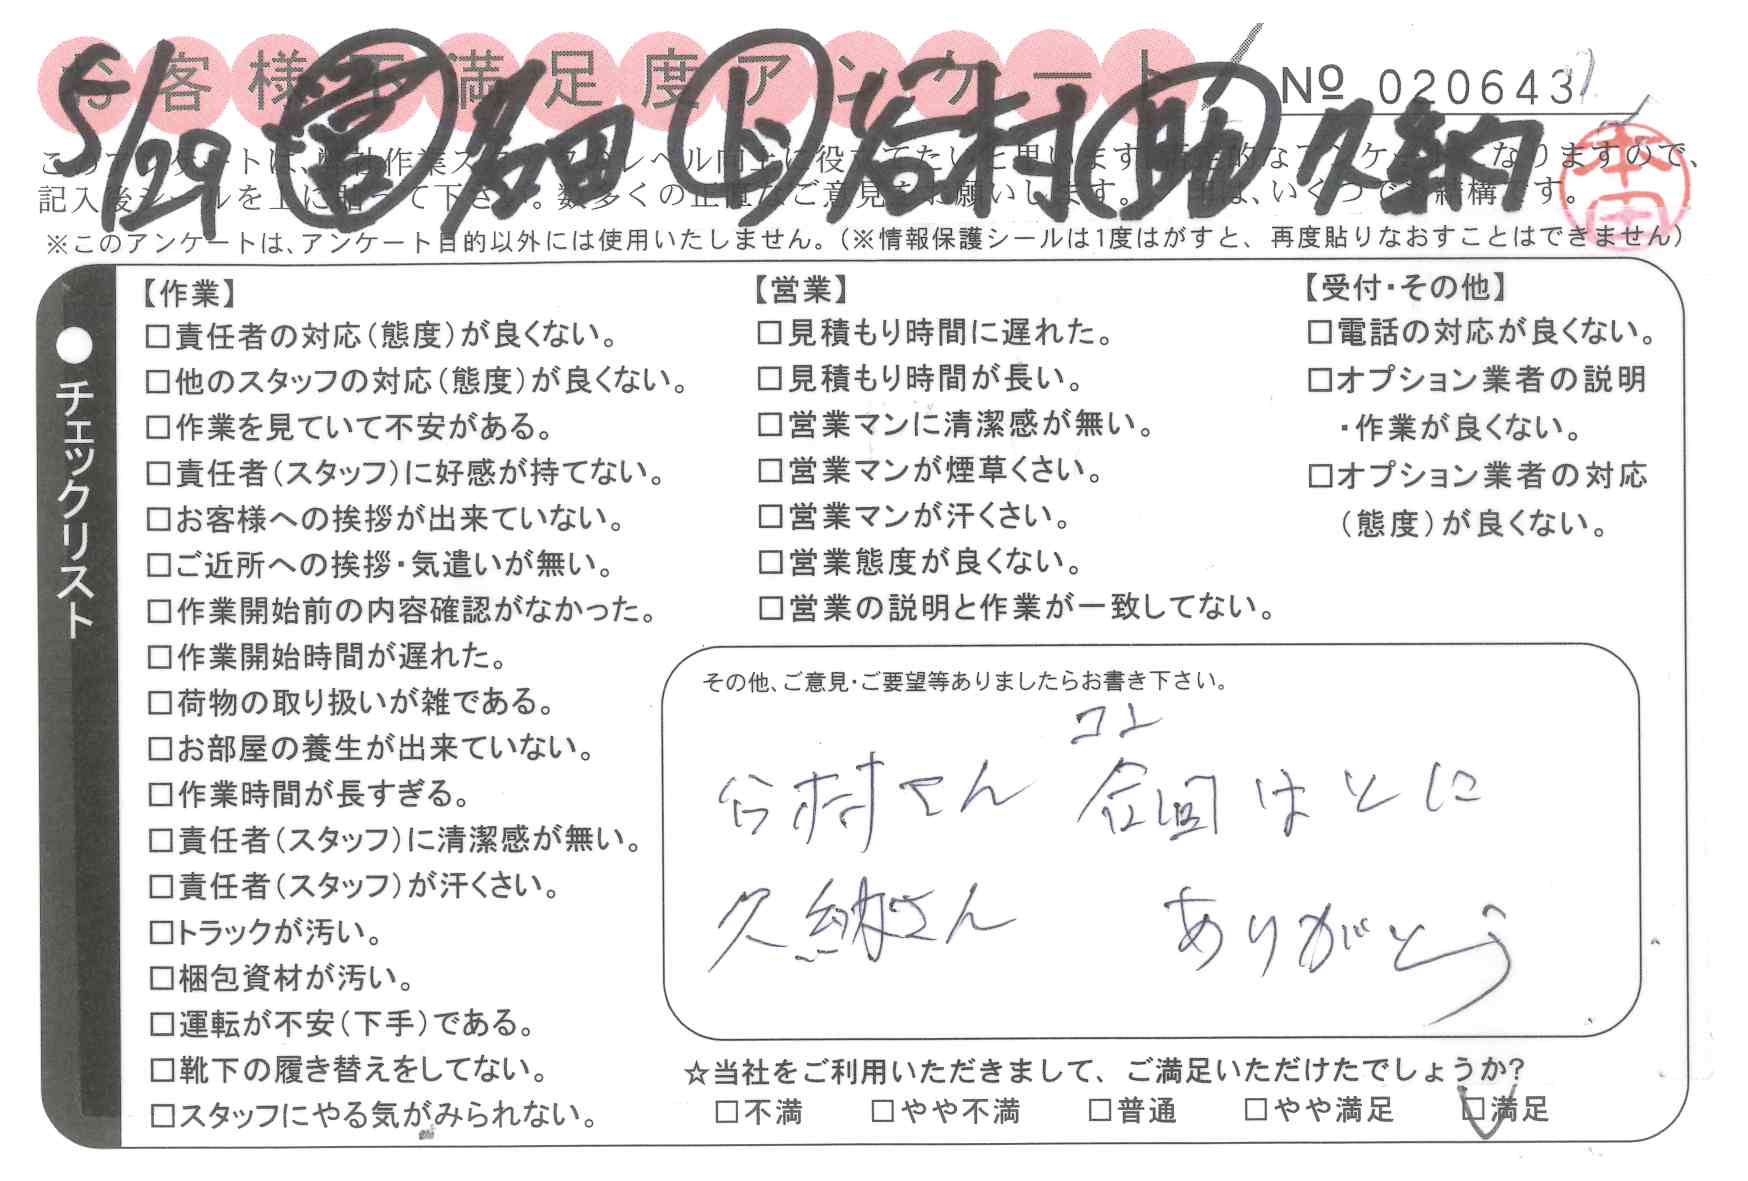 お客様不満足度アンケート
№ 020643
5/29 営 多田 ト 谷村 助 久納
本田
このアンケートは、弊社作業スタッフのレベル向上に役立てたいと思います。 なりますので、
記入後シールを上に貼って下さい。数多くの正直なご意見をお願いします。 印は、いくつでも結構です。
※このアンケートは、アンケート目的以外には使用いたしません。（※情報保護シールは1度はがすと、再度貼りなおすことはできません）
●チェックリスト
【作業】
□責任者の対応（態度）が良くない。
□他のスタッフの対応（態度）が良くない。
□作業を見ていて不安がある。
□責任者（スタッフ）に好感が持てない。
□お客様への挨拶が出来ていない。
□ご近所への挨拶・気遣いが無い。
□作業開始前の内容確認がなかった。
□作業開始時間が遅れた。
□荷物の取り扱いが雑である。
□お部屋の養生が出来ていない。
□作業時間が長すぎる。
□責任者（スタッフ）に清潔感が無い。
□責任者（スタッフ）が汗くさい。
□トラックが汚い。
□梱包資材が汚い。
□運転が不安（下手）である。
□靴下の履き替えをしてない。
□スタッフにやる気がみられない。
【営業】
□見積もり時間に遅れた。
□見積もり時間が長い。
□営業マンに清潔感が無い。
□営業マンが煙草くさい。
□営業マンが汗くさい。
□営業態度が良くない。
□営業の説明と作業が一致してない。
【受付・その他】
□電話の対応が良くない。
□オプション業者の説明
・作業が良くない。
□オプション業者の対応
（態度）が良くない。
その他、ご意見・ご要望等ありましたらお書き下さい。
谷村さん 今回はとに
久納さん ありがとう
☆当社をご利用いただきまして、ご満足いただけたでしょうか?
□不満 □やや不満 □普通 □やや満足 □満足